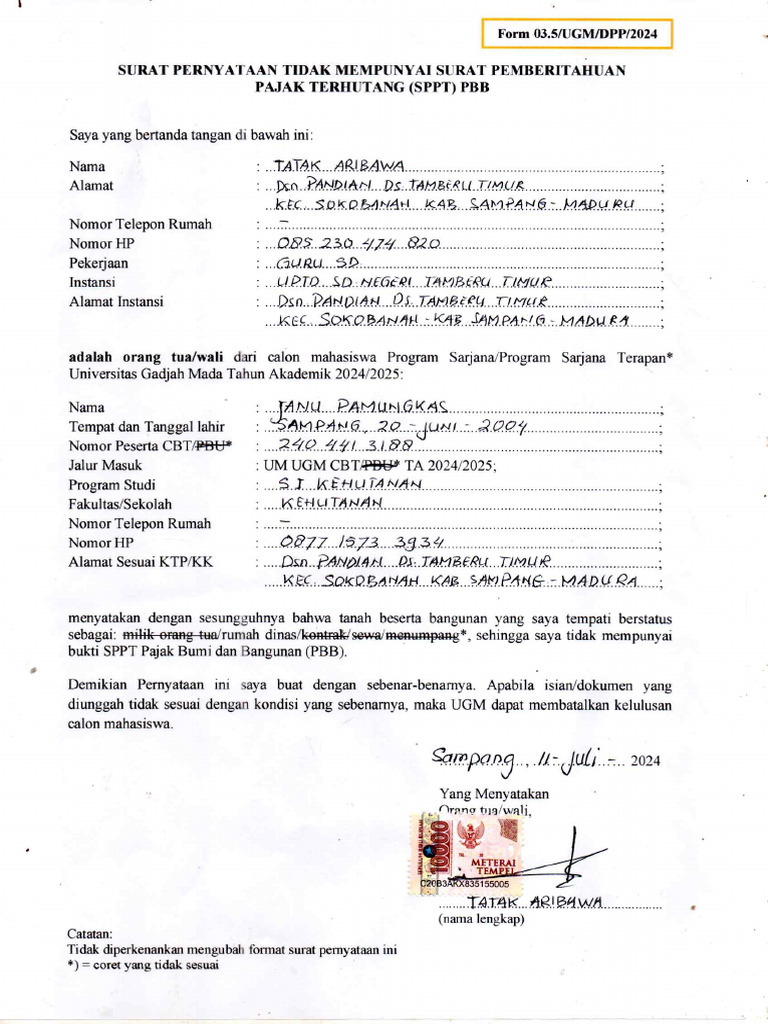 Form 03.5/UGM/DPP/2024
SURAT PERNYATAAN TIDAK MEMPUNYAI SURAT PEMBERITAHUAN
PAJAK TERHUTANG (SPPT) PBB
Saya yang bertanda tangan di bawah ini:
Nama : TATAK ARIBAWA ;
Alamat : Dsn PANDIAN Ds. TAMBERU TIMUR
KEC SOKOBANAH KAB SAMPANG - MADURU ;
Nomor Telepon Rumah : - ;
Nomor HP : 085 230 474 820 ;
Pekerjaan : GURU SD ;
Instansi : UPTD SD NEGERI TAMBERU TIMUR ;
Alamat Instansi : Dsn PANDIAN Ds. TAMBERU TIMUR ;
KEC SOKOBANAH - KAB SAMPANG - MADURA ;
adalah orang tua/wali dari calon mahasiswa Program Sarjana/Program Sarjana Terapan*
Universitas Gadjah Mada Tahun Akademik 2024/2025:
Nama : JANU PAMUNGKAS ;
Tempat dan Tanggal lahir : SAMPANG, 20 - JUNI - 2004 ;
Nomor Peserta CBT/PBU* : 240 441 3188 ;
Jalur Masuk : UM UGM CBT/PBU* TA 2024/2025;
Program Studi : S.I KEHUTANAN ;
Fakultas/Sekolah : KEHUTANAN ;
Nomor Telepon Rumah : - ;
Nomor HP : 0877 1573 3934 ;
Alamat Sesuai KTP/KK : Dsn PANDIAN Ds. TAMBERU TIMUR ;
KEC SOKOBANAH KAB SAMPANG - MADURA ;
menyatakan dengan sesungguhnya bahwa tanah beserta bangunan yang saya tempati berstatus
sebagai: milik orang tua/rumah dinas/kontrak/sewa/menumpang*, sehingga saya tidak mempunyai
bukti SPPT Pajak Bumi dan Bangunan (PBB).
Demikian Pernyataan ini saya buat dengan sebenar-benarnya. Apabila isian/dokumen yang
diunggah tidak sesuai dengan kondisi yang sebenarnya, maka UGM dapat membatalkan kelulusan
calon mahasiswa.
Sampang, 11 - Juli - 2024
Yang Menyatakan
Orang tua/wali,
10000
METERAI
TEMPEL
C20B3AKX835155005
TATAK ARIBAWA
(nama lengkap)
Catatan:
Tidak diperkenankan mengubah format surat pernyataan ini
*) = coret yang tidak sesuai